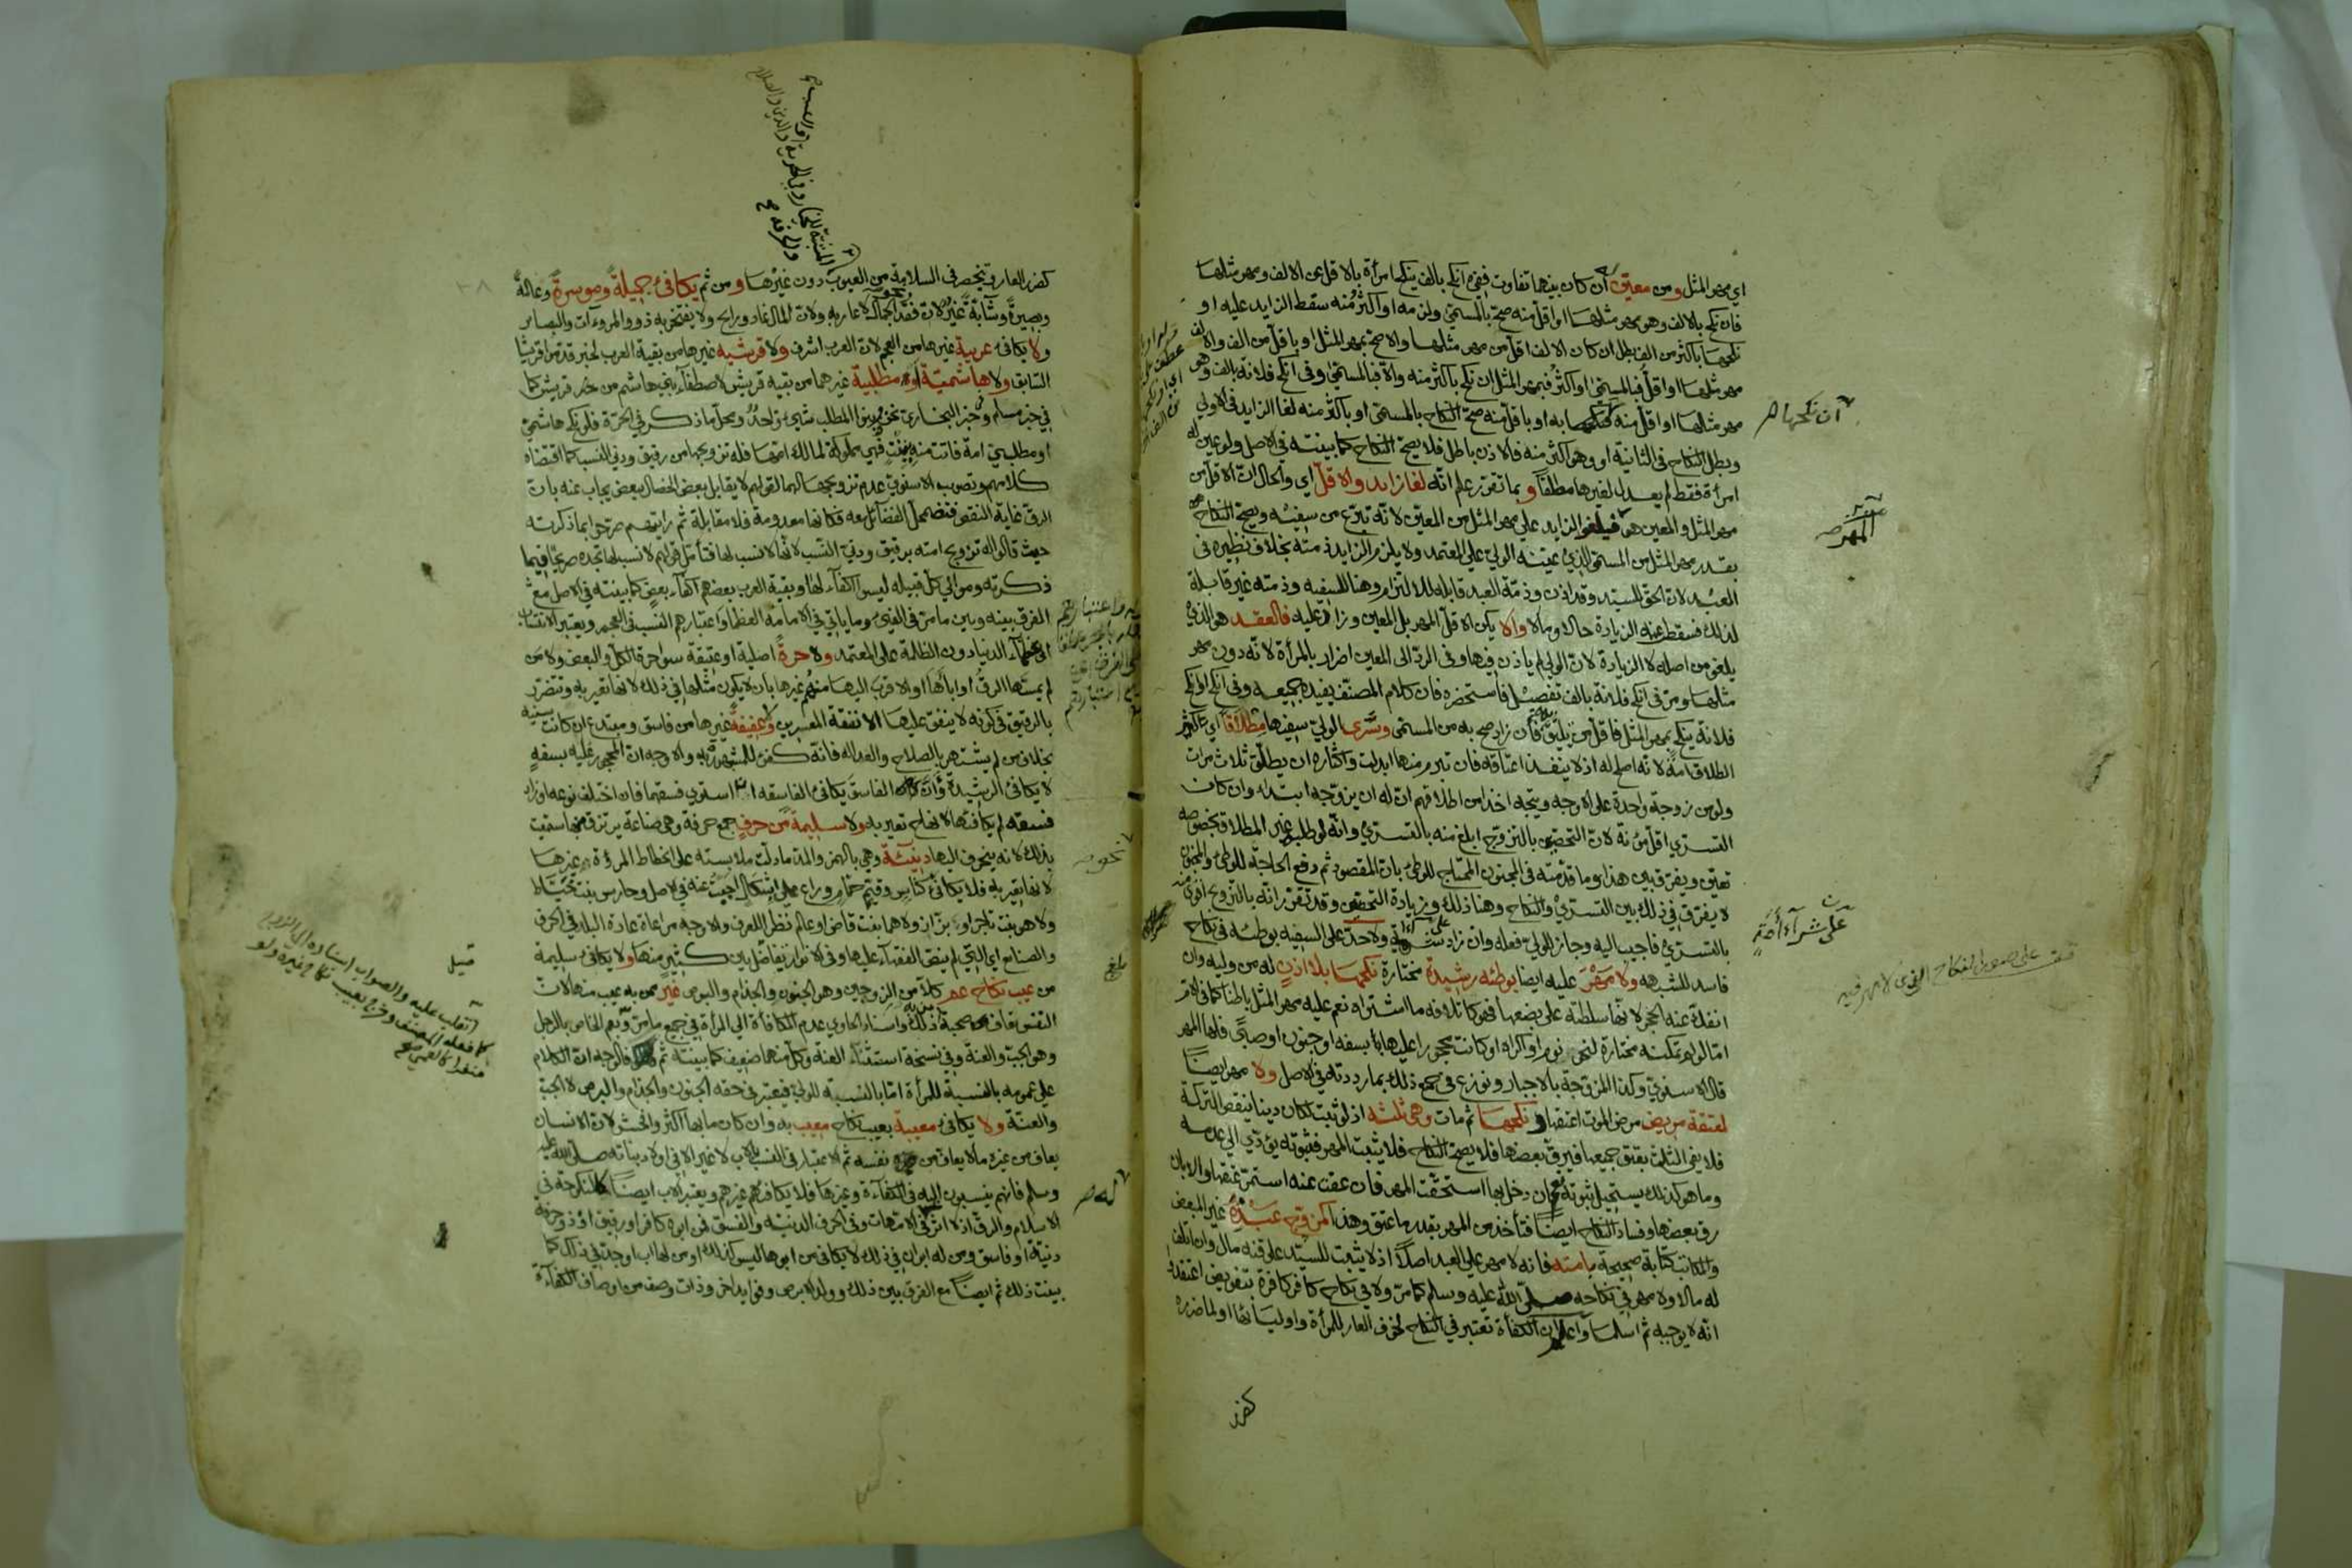 اي مهر المثل ومن معين ان كان بينهما تفاوت ففي انكح بالف ينكح امرأة بالاقل من الالف ومهر مثلها
فان نكح بالالف وهو مهر مثلها او اقل منه صح بالمسمى ولزمه او اكثر منه سقط الزايد عليه او
نكحها باكثر من الف بطل ان كان الالف اقل من مهر مثلها والا صح بمهر المثل او باقل من الف والالف
مهر مثلها او اقل فبالمسمى او اكثر فبمهر المثل ان نكح باكثر منه والا فبالمسمى وفي انكح فلانة بالف وهي
مهر مثلها او اقل منه فنكحها به او باقل منه صح النكاح بالمسمى او باكثر منه لغا الزايد في الاولى
وبطل النكاح في الثانية او وهو اكثر منه فالاذن باطل فلا يصح النكاح كما بينته في الاصل ولو عين له
امرأة فقط لم يعدل لغيرها مطلقا وبما تقرر علم انه لغا زايد والاقل اي والحال ان الاقل من
مهر المثل والمعين هو فيلغو الزايد على مهر المثل من المعين لانه تبرع من سفيه ويصح النكاح
بقدر مهر المثل من المسمى الذي عينه الولي على المعتمد ولا يلزم الزايد ذمته بخلاف نظيره في
العبد لان الحق للسيد وقد اذن وذمة العبد قابلة للالتزام وهنا للسفيه وذمته غير قابلة
لذلك فسقط عنه الزيادة حالا ومآلا والا يكن الاقل المهر بل المعين وزاد عليه فالعقد هو الذي
يلغو من اصله لا الزيادة لان الولي لم ياذن فيها وفي الرد الى المعين اضرار بالمرأة لانه دون مهر
مثلها ومر في انكح فلانة بالف تفصيل فاستحضره فان كلام المصنف يفيد جميعه وفي انكح او انكح
فلانة ينكح بمهر المثل فاقل من تليق به فان زاد صح به من المسمى وسرى الولي سفيها مطلاقا اي
الطلاق امة لانه اصلح له اذ لا ينفذ اعتاقه فان تبرم منها ابدلت واكثاره ان يطلق ثلاث مرات
ولو من زوجة واحدة على الاوجه ويتجه اخذا من اطلاقهم ان له ان يزوجه ابتداء وان كان
التسري اقل مؤنة لان التحصين بالتزوج ابلغ منه بالتسري وانه لو طلب غير المطلاق بخصوصه
تعين ويفرق بين هذا وما قدمته في المجنون المحتاج للوطئ بان المقصود ثم دفع الحاجة للوطئ والمجنون
لا يفترق في ذلك بين التسري والنكاح وهنا ذلك وزيادة التحصين وقد تقرر انه بالتزويج اقوى منه
بالتسري فاجيب اليه وجاز للولي فعله وان زاد ولا حد على السفيه بوطئه في نكاح
فاسد للشبهة ولا مهر عليه ايضا بوطئه رشيدة مختارة نكحها بلا اذن له من وليه وان
انفك عنه الحجر لانها سلطته على بضعها فهو كاتلافه ما اشتراه نعم عليه مهر المثل باطنا كما في الام
اما لو لم تمكنه مختارة لنحو نوم او اكراه او كانت محجورا عليها بسفه او جنون او صبى فلها المهر
قال الاسنوي وكذا المزوجة بالاجبار ونوزع في جميع ذلك بما رددته في الاصل ولا مهر ايضا
لعتقة مريض مرض الموت اعتقها ونكحها ثم مات وهي ثلثه اذ لو ثبت لكان دينا ينقص التركة
فلا يفي الثلث بعتق جميعها فيرق بعضها فلا يصح النكاح فلا يثبت المهر فثبوته يؤدي الى عدمه
وما هو كذلك يستحيل ثبوته نعم ان دخل بها استحقت المهر فان عفت عنه استمر عتقها والا بان
رق بعضها وفساد النكاح ايضا فتأخذ من المهر بقدر ما عتق وهذا كمن زوج عبده غير المبعض
والمكاتب كتابة صحيحة بامته فانه لا مهر على العبد اصلا اذ لا يثبت للسيد على قنه مال وان اتلف
له مالا ولا مهر في نكاحه صلى الله عليه وسلم كما مر ولا في نكاح كافر كافرة بتفويض اعتقدا
انه لا يوجبه ثم اسلما واعلم ان الكفأة تعتبر في النكاح لخوف العار للمرأة واوليائها او لما ضرره
آن نكحها
المهر
على شراء أمة
كفر العار وتنحصر في السلامة من العيوب دون غيرها ومن ثم يكافئ جميلة وموسرة وعالة
وبصيرة وشابة غير لان فقد الجمال لا عار به ولان المال غاد ورايح ولا يفتخر به ذوو المروءات والبصائر
ولا يكافئ عربية غيرها من العجم لان العرب اشرف ولا قرشية غيرها من بقية العرب لخبر قدموا قريشا
السابق ولا هاشمية او مطلبية غيرهما من بقية قريش لاصطفاء بني هاشم من خير قريش كما
في خبر مسلم وفي خبر البخاري نحن وبنوا المطلب شيء واحد ومحل ما ذكر في الحرة فلو نكح هاشمي
او مطلبي امة فاتت منه ببنت فهي مملوكة لمالك امها فله تزويجها من رقيق ودني النسب كما اقتضاه
كلامهم وتصويب الاسنوي عدم تزويجها لهما لقولهم لا يقابل بعض الخصال ببعض يجاب عنه بان
الرق غاية النقص فتضمحل الفضائل معه فكانها معدومة فلا مقابلة ثم رايتهم صرحوا بما ذكرته
حيث قالوا له تزويج امته برقيق ودني النسب لانها لا نسب لها فتأمل قولهم لا نسب لها تجده صريحا فيما
ذكرته وموالي كل قبيلة ليسوا اكفاء لها وبقية العرب بعضهم اكفاء بعض كما بينته في الاصل مع
الفرق بينه وبين ما مر في الفيء وما ياتي في الامامة العظمى واعتبارهم النسب في العجم ويعتبر الانتساب
الى عظماء الدنيا دون الظلمة على المعتمد ولا حرة اصلية او عتيقة سواء حرة الكل والبعض ولا من
لم يمسها الرق او اباءها او الاقرب اليها منهم غيرها بان لا يكون مثلها في ذلك لانها تعير به وتتضرر
بالرقيق في كونه لا ينفق عليها الا نفقة المعسرين ولا عفيفة غيرها من فاسق ومبتدع ان كانت سنية
بخلاف من لم يشتهر بالصلاح والعدالة فانه كفؤ للمشهورة به والاوجه ان المحجور عليه بسفه
لا يكافئ الرشيدة وان الفاسق يكافئ الفاسقة استوى فسقهما فان اختلف نوعه او زاد
فسقه لم يكافئها لانها تعير به ولا سليمة من حرف جمع حرفة وهي صناعة يرتزق منها سميت
بذلك لانه ينحرف اليها دنيئة وهي بالهمز والمد ما دلت ملابسته على انحطاط المروءة غيرها
لانها تعير به فلا يكافئ كناس وقيم حمام وراع على اشكال اجبت عنه في الاصل وحارس بنت خياط
ولا هو بنت تاجر او بزاز ولا هما بنت قاض او عالم نظرا للعرف والاوجه مراعاة عادة البلد في الحرف
والصنايع اي التي لم ينص الفقهاء عليها وفي الانوار تفاضل بين كثير منها ولا يكافئ سليمة
من عيب نكاح كلا من الزوجين وهو الجنون والجذام والبرص غير من به عيب منها لان
النفس تعاف صحبة ذلك واسناد الحاوي عدم المكافأة الى المرأة في جميع ما مر وتعم الخاص بالرجل
وهو الجب والعنة وفي نسخة استثناء العنة وكل منها ضعيف كما بينته ثم فالاوجه ان الكلام
على عمومه بالنسبة للمرأة اما بالنسبة للولي فيعتبر في حقه الجنون والجذام والبرص لا الجب
والعنة ولا يكافئ معيبة بعيب نكاح معيب به وان كان ما بها اكثر وافحش لان الانسان
يعاف من غيره ما لا يعاف من نفسه ثم الاعتبار في النسب بالاب لا غير الا في اولاد بناته صلى الله عليه
وسلم فانهم ينسبون اليه في الكفاءة وغيرها فلا يكافئهم غيرهم ويعتبر الاب ايضا كالمنكوحة في
الاسلام والرق اذ لا اثر في الامهات وفي الحرف الدنية والفسق فمن ابوه كافر او رقيق او ذو حرفة
دنية او فاسق ومن له ابوان في ذلك لا يكافئ من ابوها ليس كذلك او من لها اب او جد في ذلك كما
بينت ذلك ثم ايضا مع الفرق بين ذلك وولد الابرص وفوايد اخر وذات وصف من اوصاف الكفاءة
نحو
بلغ